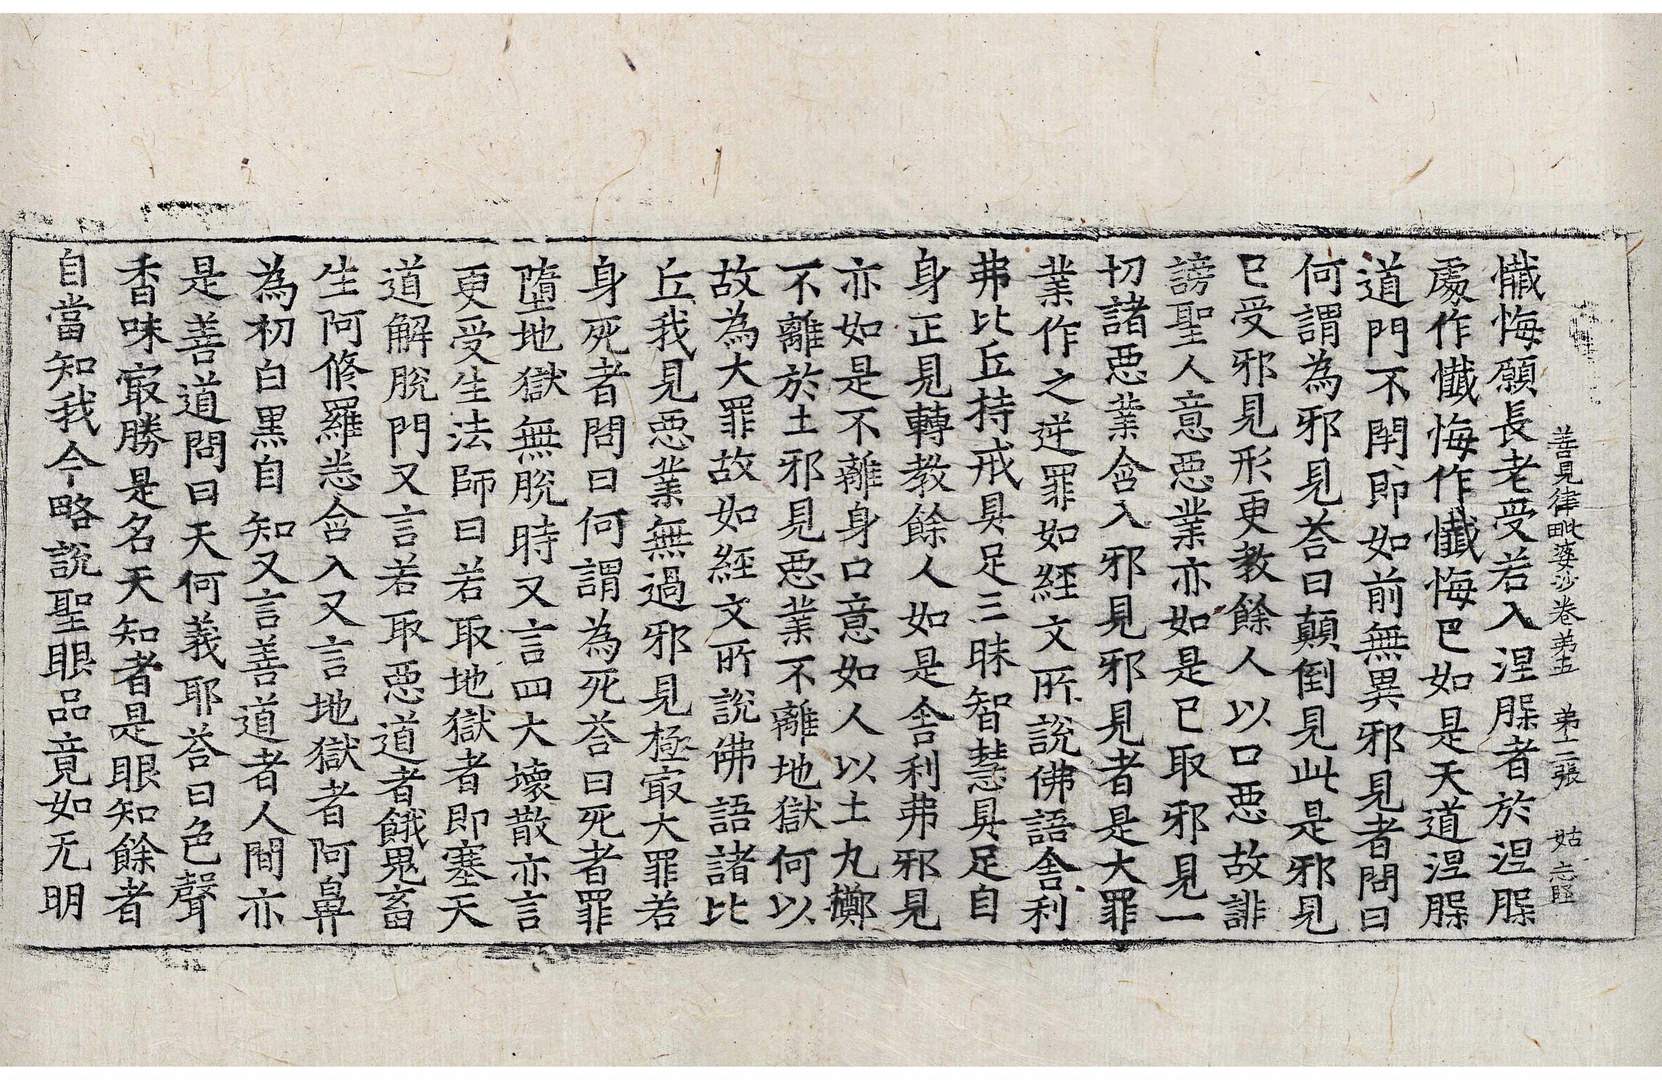 善見律毗婆沙卷弟五 弟十二張 姑
懺悔願長老受若入涅腺者於涅腺
處作懺悔作懺悔已如是天道涅腺
道門不閇即如前無異邪見者問曰
何謂為邪見荅曰顛倒見此是邪見
已受邪見形更教餘人以口惡故誹
謗聖人意惡業亦如是已取邪見一
切諸惡業含入邪見邪見者是大罪
業作之逆罪如經文所說佛語舍利
弗比丘持戒具足三昧智慧具足自
身正見轉教餘人如是舍利弗邪見
亦如是不離身口意如人以土丸擲
不離於土邪見惡業不離地獄何以
故為大罪故如經文所說佛語諸比
丘我見惡業無過邪見極冣大罪若
身死者問曰何謂為死荅曰死者罪
墮地獄無脫時又言四大壞散亦言
更受生法師曰若取地獄者即塞天
道解脫門又言若取惡道者餓鬼畜
生阿脩羅悉含入又言地獄者阿鼻
為初白黑自知又言善道者人間亦
是善道問曰天何義耶荅曰色聲
香味冣勝是名天知者是眼知餘者
自當知我今略說聖眼品竟如无明